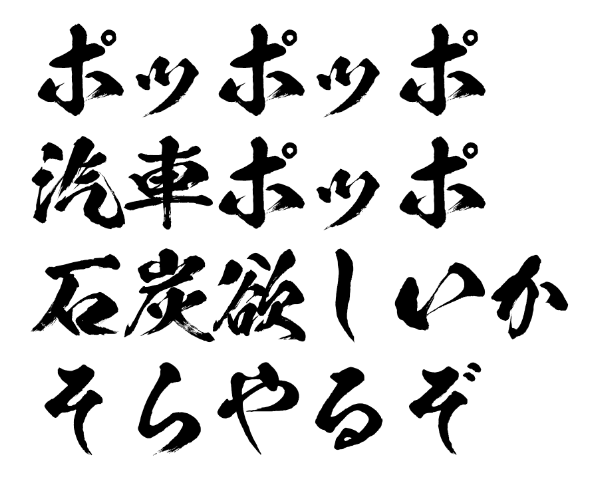 ポッポッポ
汽車ポッポ
石炭欲しいか
そらやるぞ